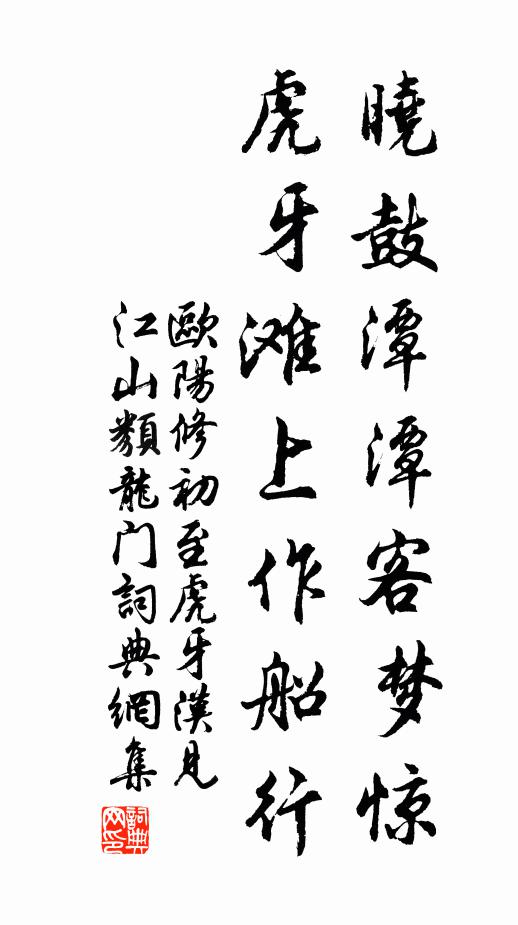 曉鼓潭潭客梦惊
虎牙滩上作船行
歐陽修初至虎牙漠見
江山類龍门詞典網集
詞典
网印